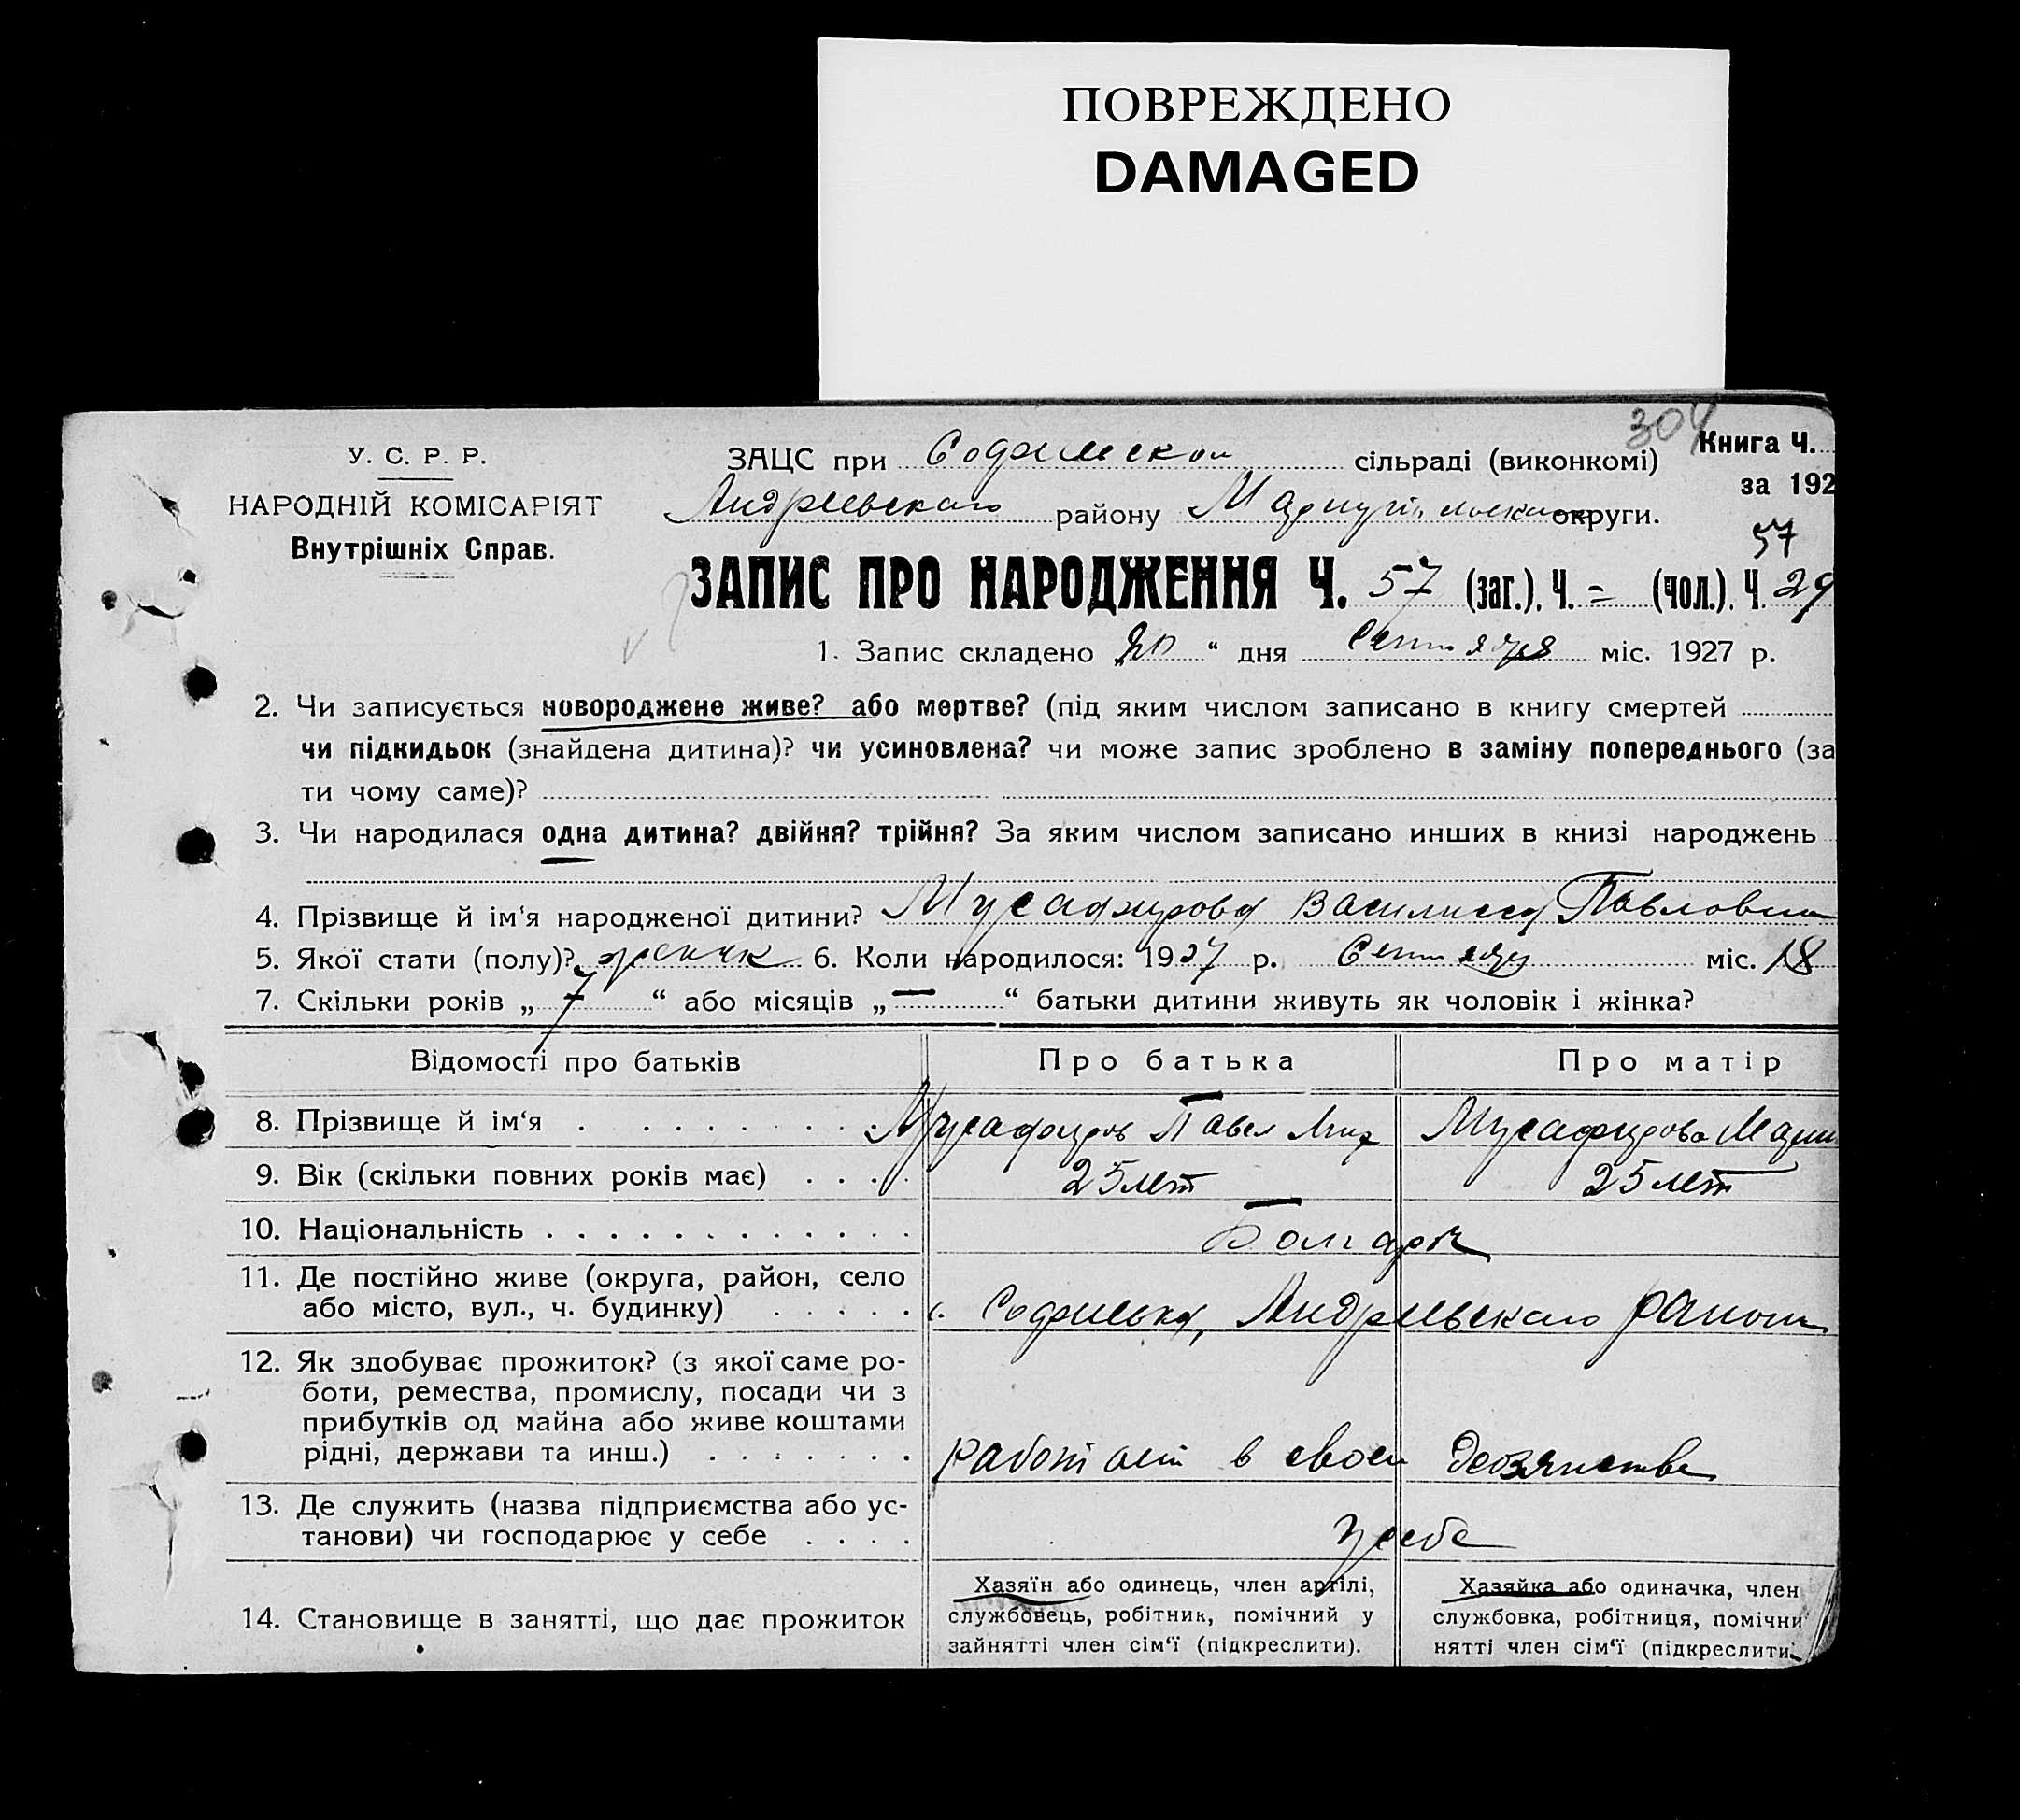 ПОВРЕЖДЕНО
DAMAGED
304
У. С. Р. Р.
НАРОДНІЙ КОМІСАРІЯТ
Внутрішніх Справ.
ЗАЦС при сільраді (виконкомі)
Книга Ч.
за 192
Андреевского району округи.
57
ЗАПИС ПРО НАРОДЖЕННЯ Ч. 57 (заг.). Ч. = (чол.). Ч. 29
1. Запис складено „20“ дня Сентября міс. 1927 р.
2. Чи записується новороджене живе? або мертве? (під яким числом записано в книгу смертей
чи підкидьок (знайдена дитина)? чи усиновлена? чи може запис зроблено в заміну попереднього (за
ти чому саме)?
3. Чи народилася одна дитина? двійня? трійня? За яким числом записано инших в книзі народжень
4. Прізвище й ім‘я народженої дитини? Мусафирова Василиса Павловна
5. Якої стати (полу)? 6. Коли народилося: 1927 р. Сентября міс. 18
7. Скільки років „7“ або місяців „—“ батьки дитини живуть як чоловік і жінка?
Відомості про батьків Про батька Про матір
8. Прізвище й ім‘я Мусафиров Павел Мусафирова
9. Вік (скільки повних років має) 25 лет 25 лет
10. Національність Болгары
11. Де постійно живе (округа, район, село
або місто, вул., ч. будинку) с. Андреевского района
12. Як здобуває прожиток? (з якої саме ро-
боти, ремества, промислу, посади чи з
прибутків од майна або живе коштами
рідні, держави та инш.) работает в своем хозяйстве
13. Де служить (назва підприємства або ус-
танови) чи господарює у себе у себе
14. Становище в занятті, що дає прожиток
Хазяїн або одинець, член артілі,
службовець, робітник, помічний у
зайнятті член сім‘ї (підкреслити).
Хазяйка або одиначка, член
службовка, робітниця, помічни
нятті член сім‘ї (підкреслити